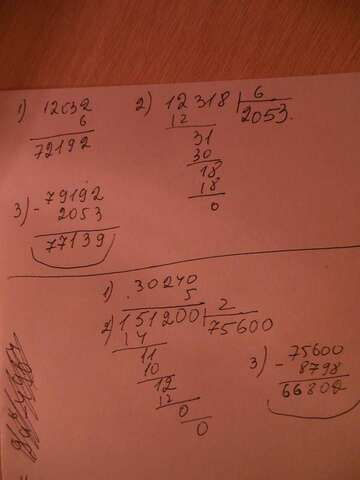 1) 12032
6
72192
2) 12318 6
12 2053
31
30
18
18
0
3) - 79192
2053
77139
1) 30240
5
2) 151200 2
14 75600
11
10
12
12
0
0
3) - 75600
8798
66802